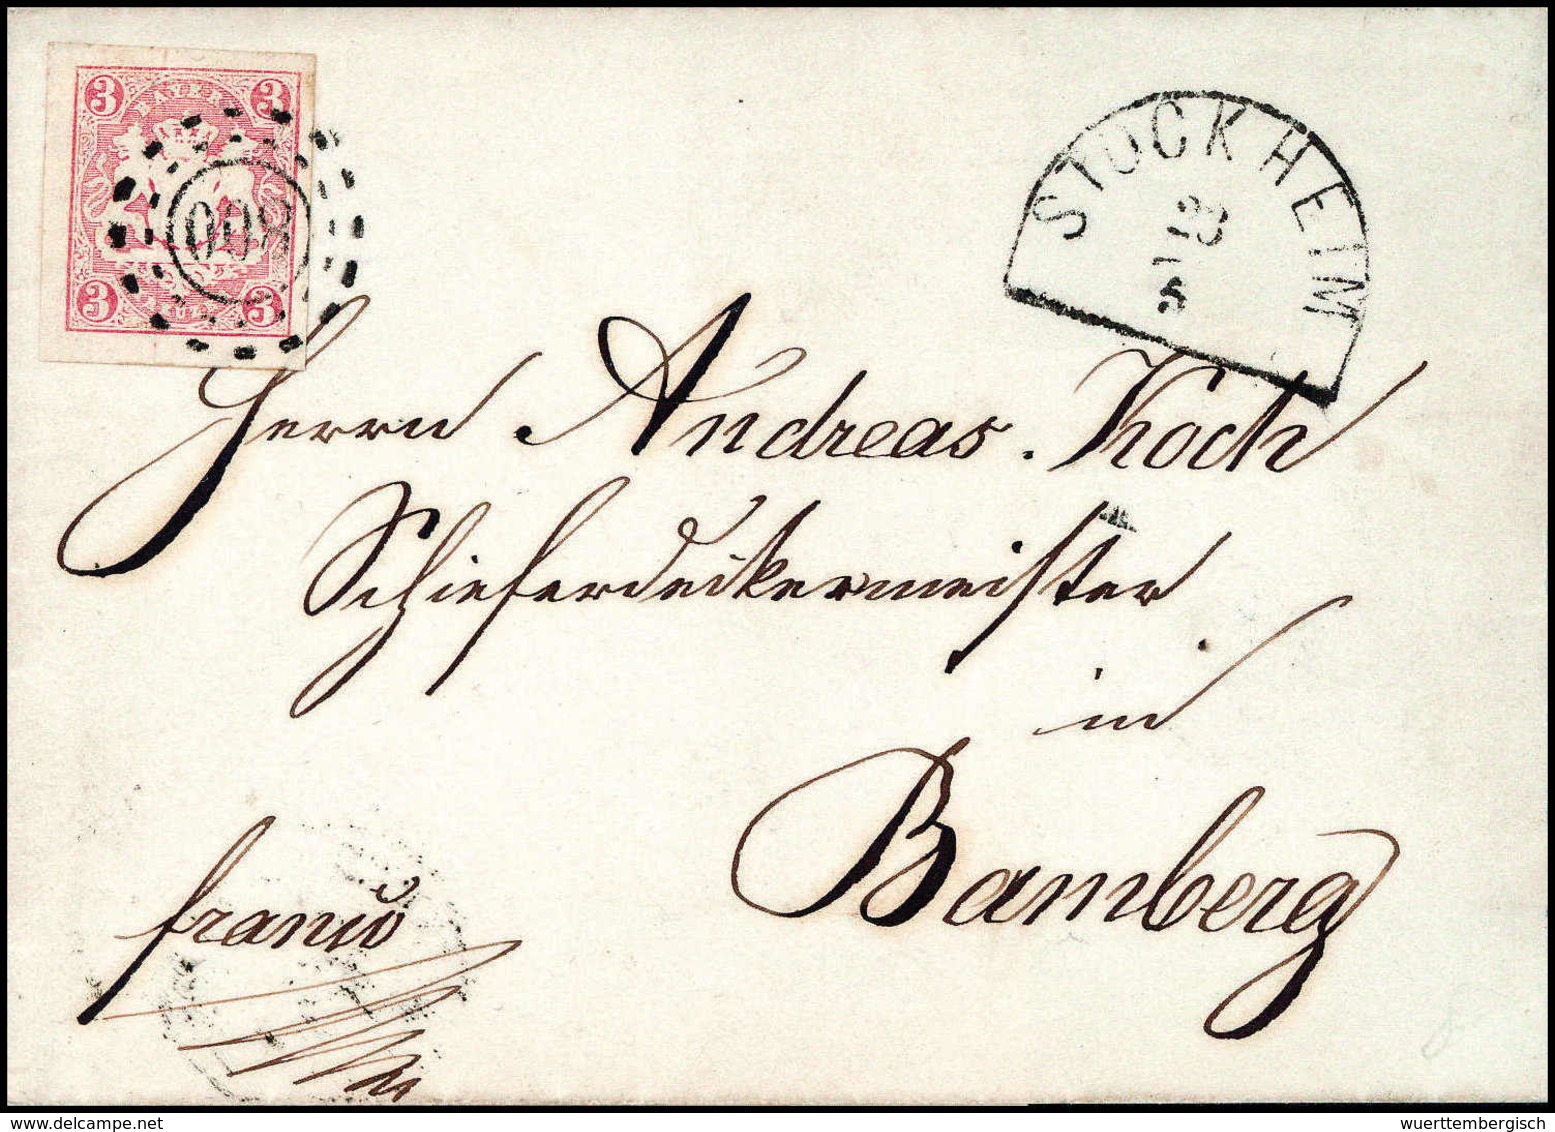 3 BAYERN 3
3 3
STOCKHEIM
13
5
Herrn Andreas Koch
Schieferdeckermeister
in
Bamberg
franco
wuerttembergisch